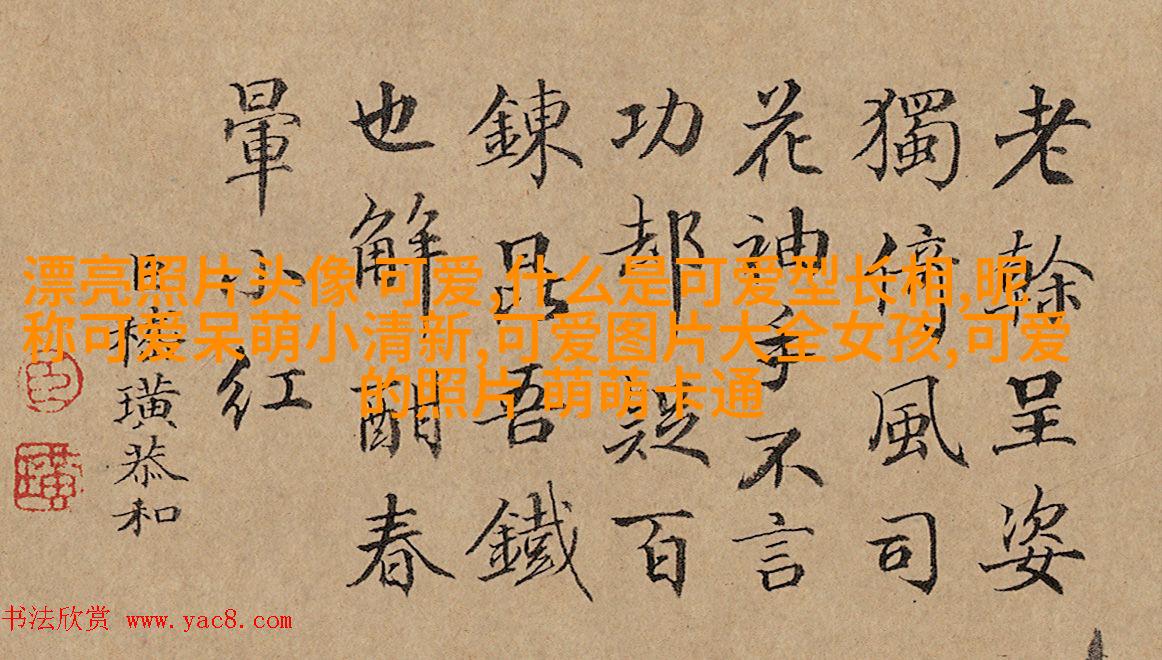 老榦呈姿
獨倚風司
花神手不言
功却疑百
鍊昆吾鐵
也解酣春
暈小紅
臣嵇璜恭和
臣
璜
漂亮照片头像 可爱,什么是可爱型长相,昵
称可爱呆萌小清新,可爱图片大全女孩,可爱
的照片 萌萌卡通
书法欣赏 www.yac8.com